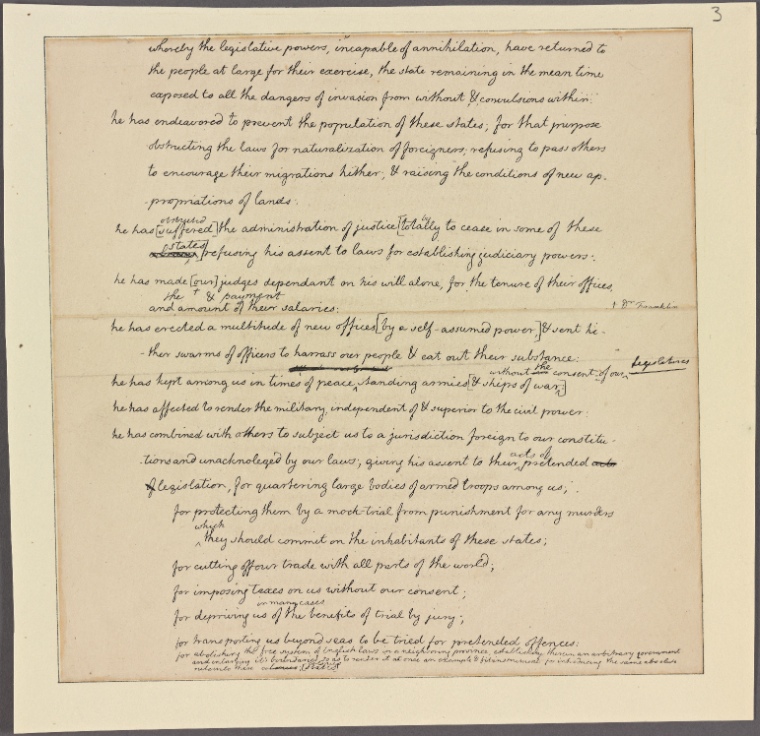 3
whereby the legislative powers, incapable of annihilation, have returned to
the people at large for their exercise, the state remaining in the mean time
exposed to all the dangers of invasion from without & convulsions within:
he has endeavored to prevent the population of these states; for that purpose
obstructing the laws for naturalization of foreigners; refusing to pass others
to encourage their migrations hither; & raising the conditions of new ap-
-propriations of lands:
obstructed by
he has [suffered] the administration of justice [totally to cease in some of these
states]
refusing his assent to laws for establishing judiciary powers:
he has made [our] judges dependant on his will alone, for the tenure of their offices,
the † & payment
and amount of their salaries:
† Dr Franklin
he has erected a multitude of new offices [by a self-assumed power,] & sent hi-
-ther swarms of officers to harrass our people & eat out their substance:
without the consent of our legislatures
he has kept among us in times of peace, standing armies [& ships of war:]
he has affected to render the military, independent of & superior to the civil power:
he has combined with others to subject us to a jurisdiction foreign to our constitu-
-tions and unacknoleged by our laws; giving his assent to their pretended acts
acts of
of legislation, for quartering large bodies of armed troops among us;
for protecting them by a mock-trial from punishment for any murders
which
they should commit on the inhabitants of these states;
for cutting off our trade with all parts of the world;
for imposing taxes on us without our consent;
in many cases
for depriving us of the benefits of trial by jury;
for transporting us beyond seas to be tried for pretended offences:
for abolishing the free system of English laws in a neighboring province, establishing therein an arbitrary government
and enlarging it's boundaries so as to render it at once an example & fit instrument for introducing the same absolute
rule into these colonies [states]